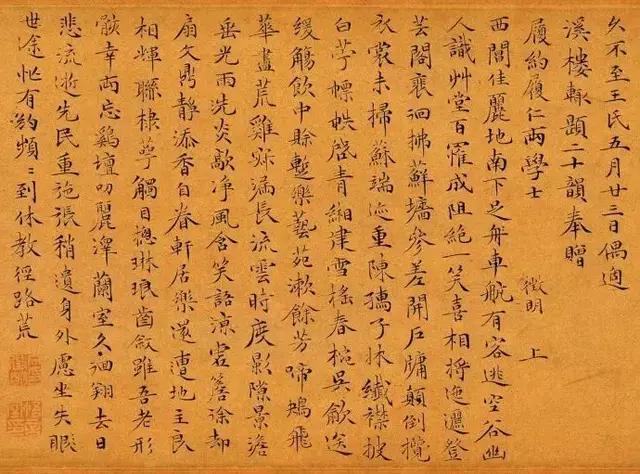 久不至王氏五月廿三日偶過
溪樓輒題二十韻奉贈
履約履仁兩學士
徵明 上
西閣佳麗地南下足舟車航有客逃空谷幽
人識艸堂百罹成阻絕一笑喜相將迤邐登
芸閣裵洄拂蘚墻參差開戶牖顛倒攬
衣裳未掃蘇端迹重陳孺子牀纖襟披
白苧幖帙啓青緗雪搖春椀吳歈送
緩觴飲中賒蹔樂藝苑漱餘芳啼鴂飛
華盡荒雞漏長流雲時度影隙景澹
垂光雨洗炎歊净風含笑語涼簷涂却
扇文鼎靜添香自眷軒居樂還遭地主良
相輝聯棣萼觸目揔琳琅齒敘雖吾老形
骸幸兩忘鷄壇叨麗澤蘭室久徊翔去日
悲流逝先民重施張稍遺身外慮坐失眼
世途忙有約頻〻到休教徑路荒